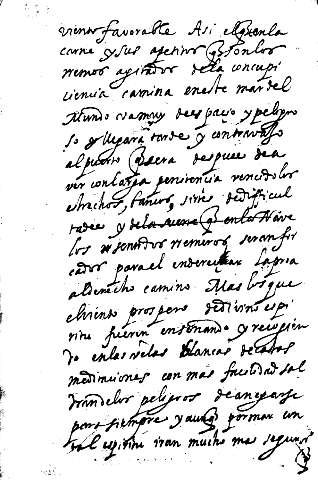 viento favorable Asi el q̃ en la
carne y sus apetitos q̃ son los
remos agitados de la concupi
ciencia camina en este mar del
Mundo va muy de espacio y peligro
so y llegará tarde y con travajo
al puerto q̃ sera despues de a
ver con larga penitencia vencido los
estrechos, y dificul
tades y de la suerte q̃ en los Nave
los remeros, seran fi
cados para el enderezar la proa
al derecho camino Mas los que
el viento prospero de divino espi
ritu fueren enseñando y recogien
do en las velas blancas de altas
meditaciones con mas facilidad sal
dran de los peligros de anegarse
para siempre y aunq̃ por mar con
tal espiritu iran mucho mas seguros